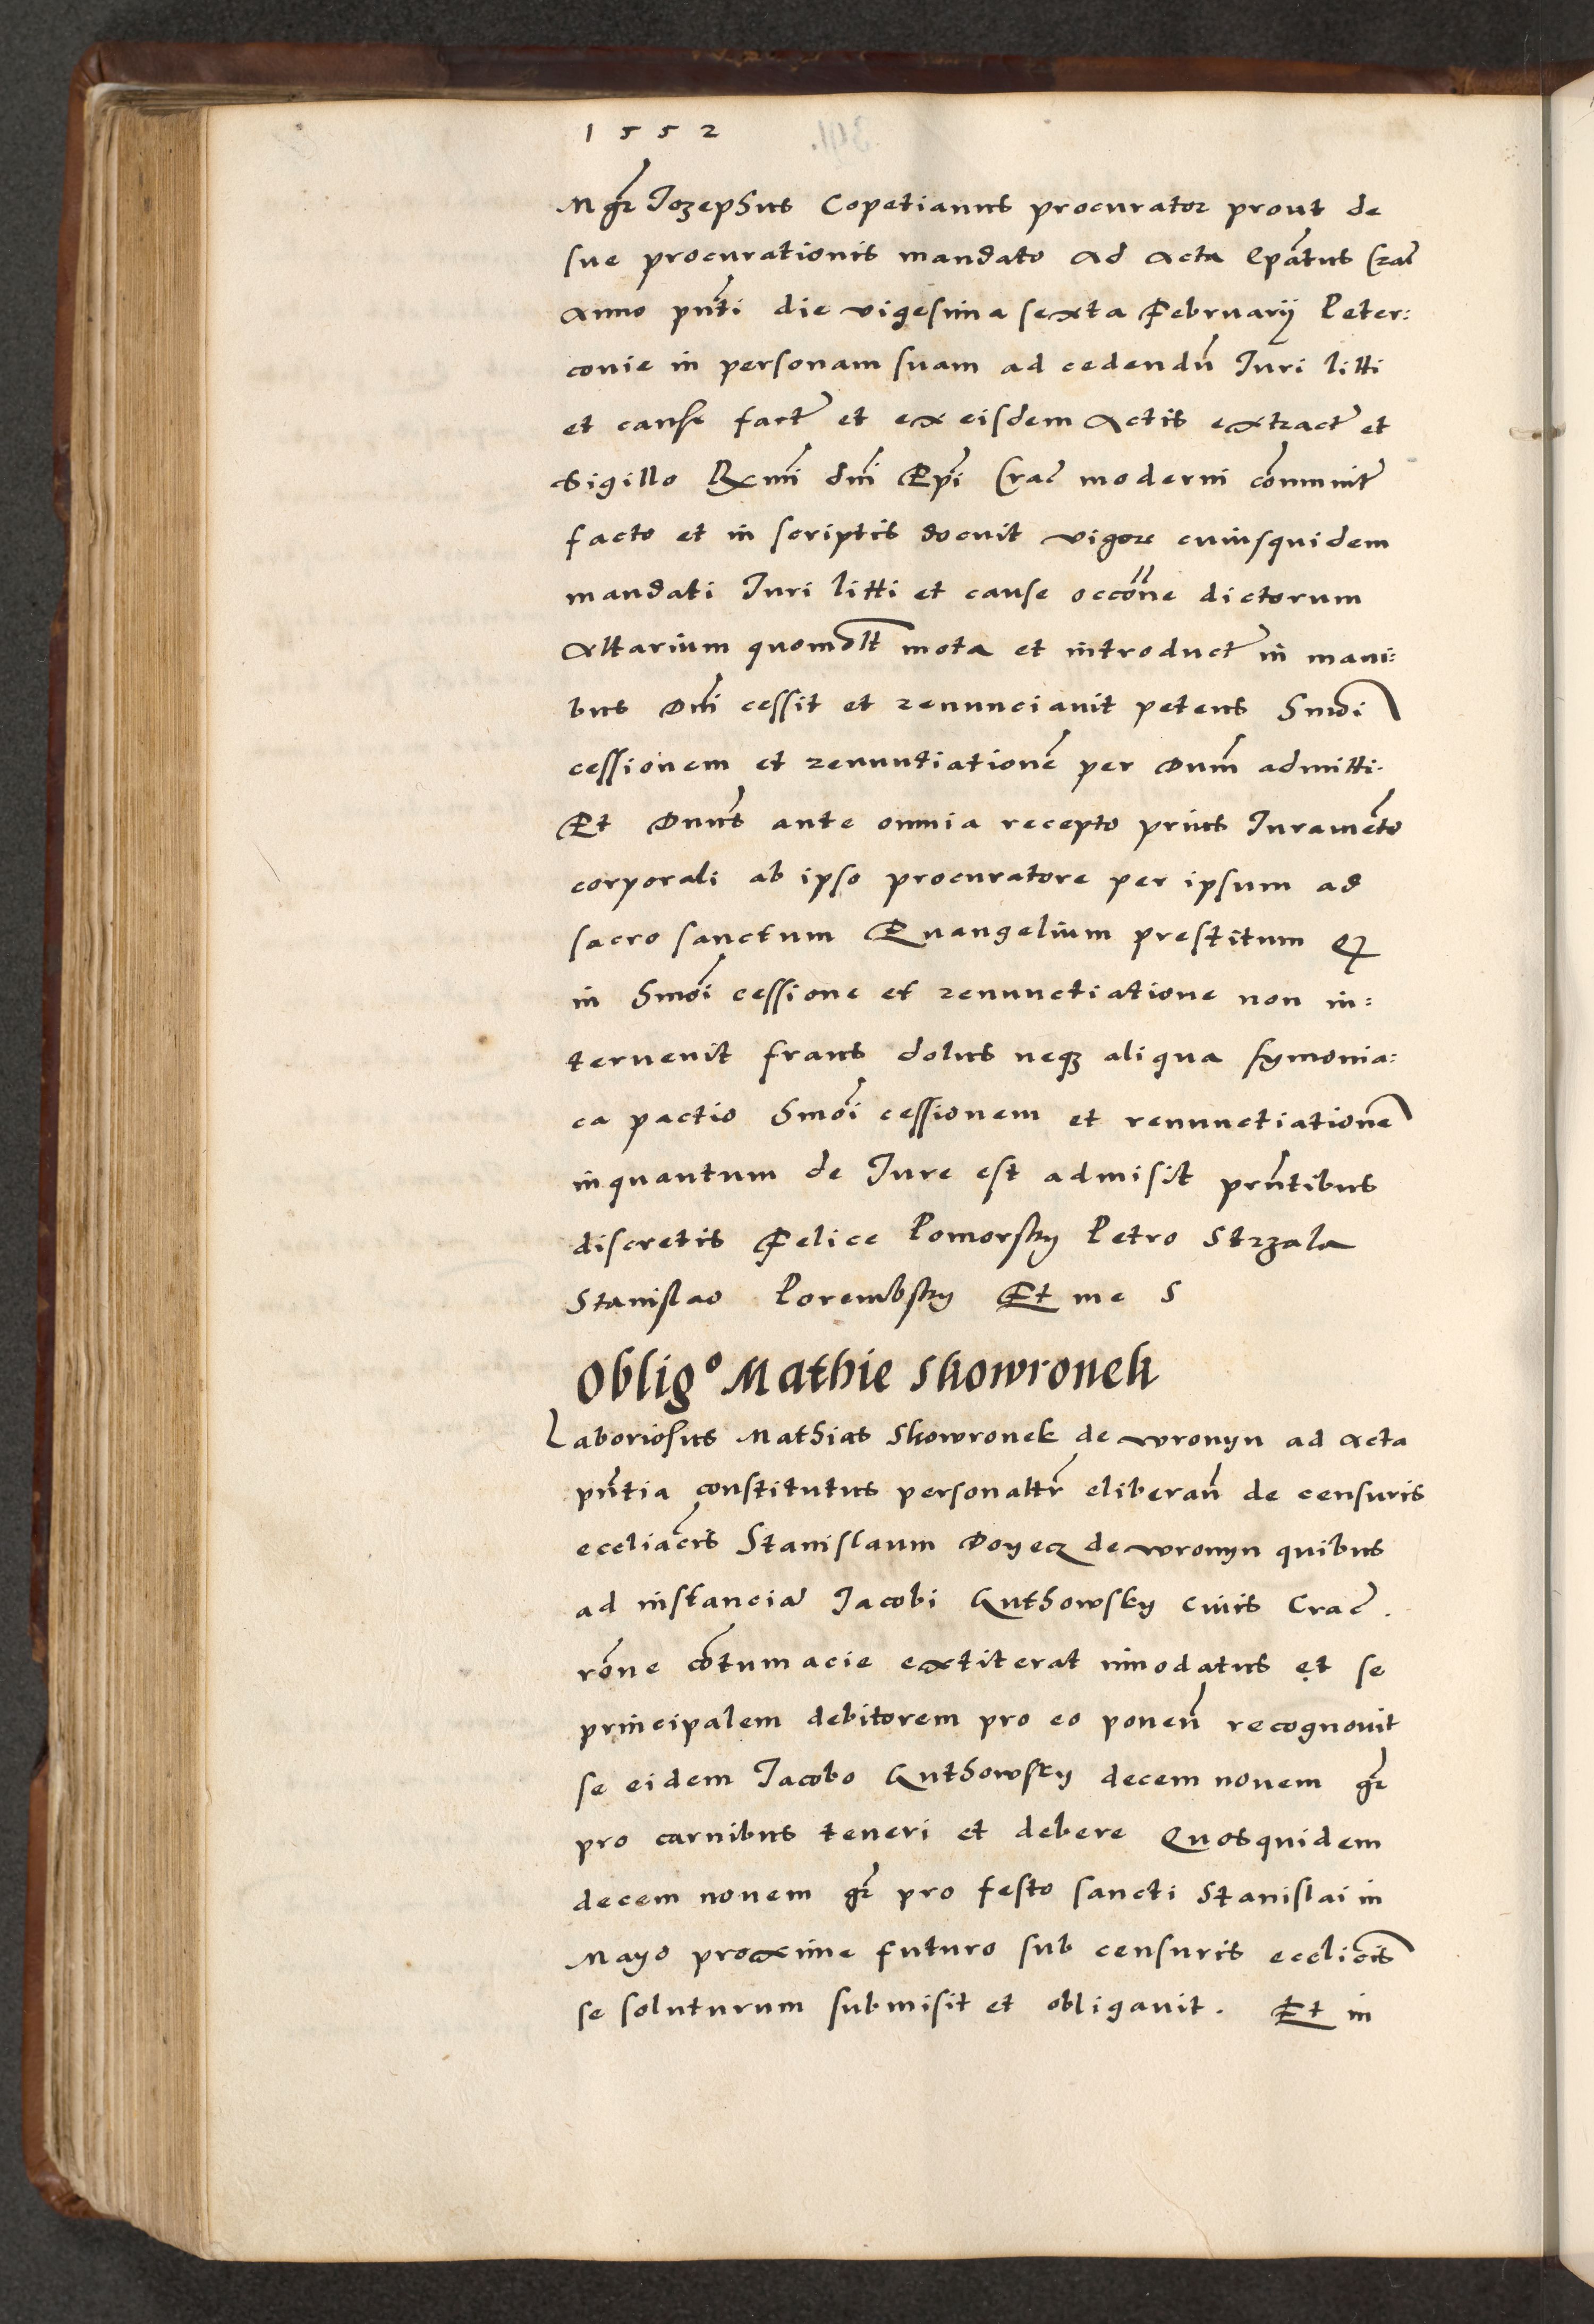 1552
Mgr̃ Jozephus Copetianus procurator prout de
sue procurationis mandato ad acta Ep̃atus Crac̃
anno pñti die vigesima sexta Februarij Peter:
covie in personam suam ad cedendũ Juri litti
et cause fact̃ et ex eisdem Actis extract̃ et
Sigillo Rx̃mi dñi Ep̃i Crac̃ moderni cõmunit̃
facto et in scriptis docuit vigore cuiusquidem
mandati Juri litti et cause occõne dictorum
Altarium quomõlt mota et introduct̃ in mani:
bus Dñi cessit et renunciavit petens Hmõi
cessionem et renuntiationẽ per Dnũm admitti.
Et Dnũs ante omnia recepto prius Juramẽto
corporali ab ipso procuratore per ipsum ad
sacro sanctum Evangelium prestitum Q
in Hmõi cessione et renunctiatione non in:
tervenit fraus dolus neqz aliqua symonia:
ca pactio Hmõi cessionem et renunctiationẽ
inquantum de Jure est admisit prñtibus
discretis Felice Pomorsky Petro Strzala
Stanislao Porembsky Et me S
Obligº Mathie Skowronek
Laboriosus Mathias Skowronek de wronyn ad acta
pñtia constitutus personaltr̃ eliberañ de censuris
eccliac̃is Stanislaum Doyecz de wronyn quibus
ad instanciã Jacobi Guthowsky civis Crac̃.
rõne cõtumacie extiterat innodatus et se
principalem debitorem pro eo poneñ recognovit
se eidem Jacobo Guthowsky decem novem gr̃
pro carnibus teneri et debere Quosquidem
decem novem gr̃ pro festo sancti Stanislai in
Mayo proxime futuro sub censuris ecclic̃is
se soluturum submisit et obligavit. Et in